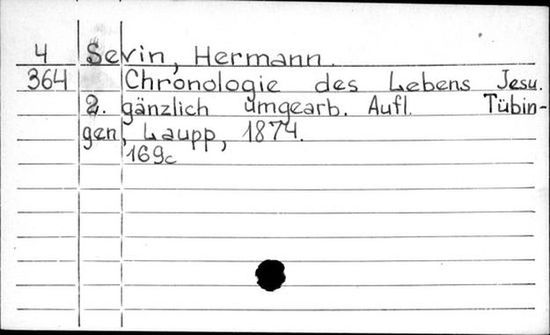 4 Sevin, Hermann.
364 Chronologie des Lebens Jesu.
2. gänzlich umgearb. Aufl. Tübin-
gen, Laupp, 1874.
169c